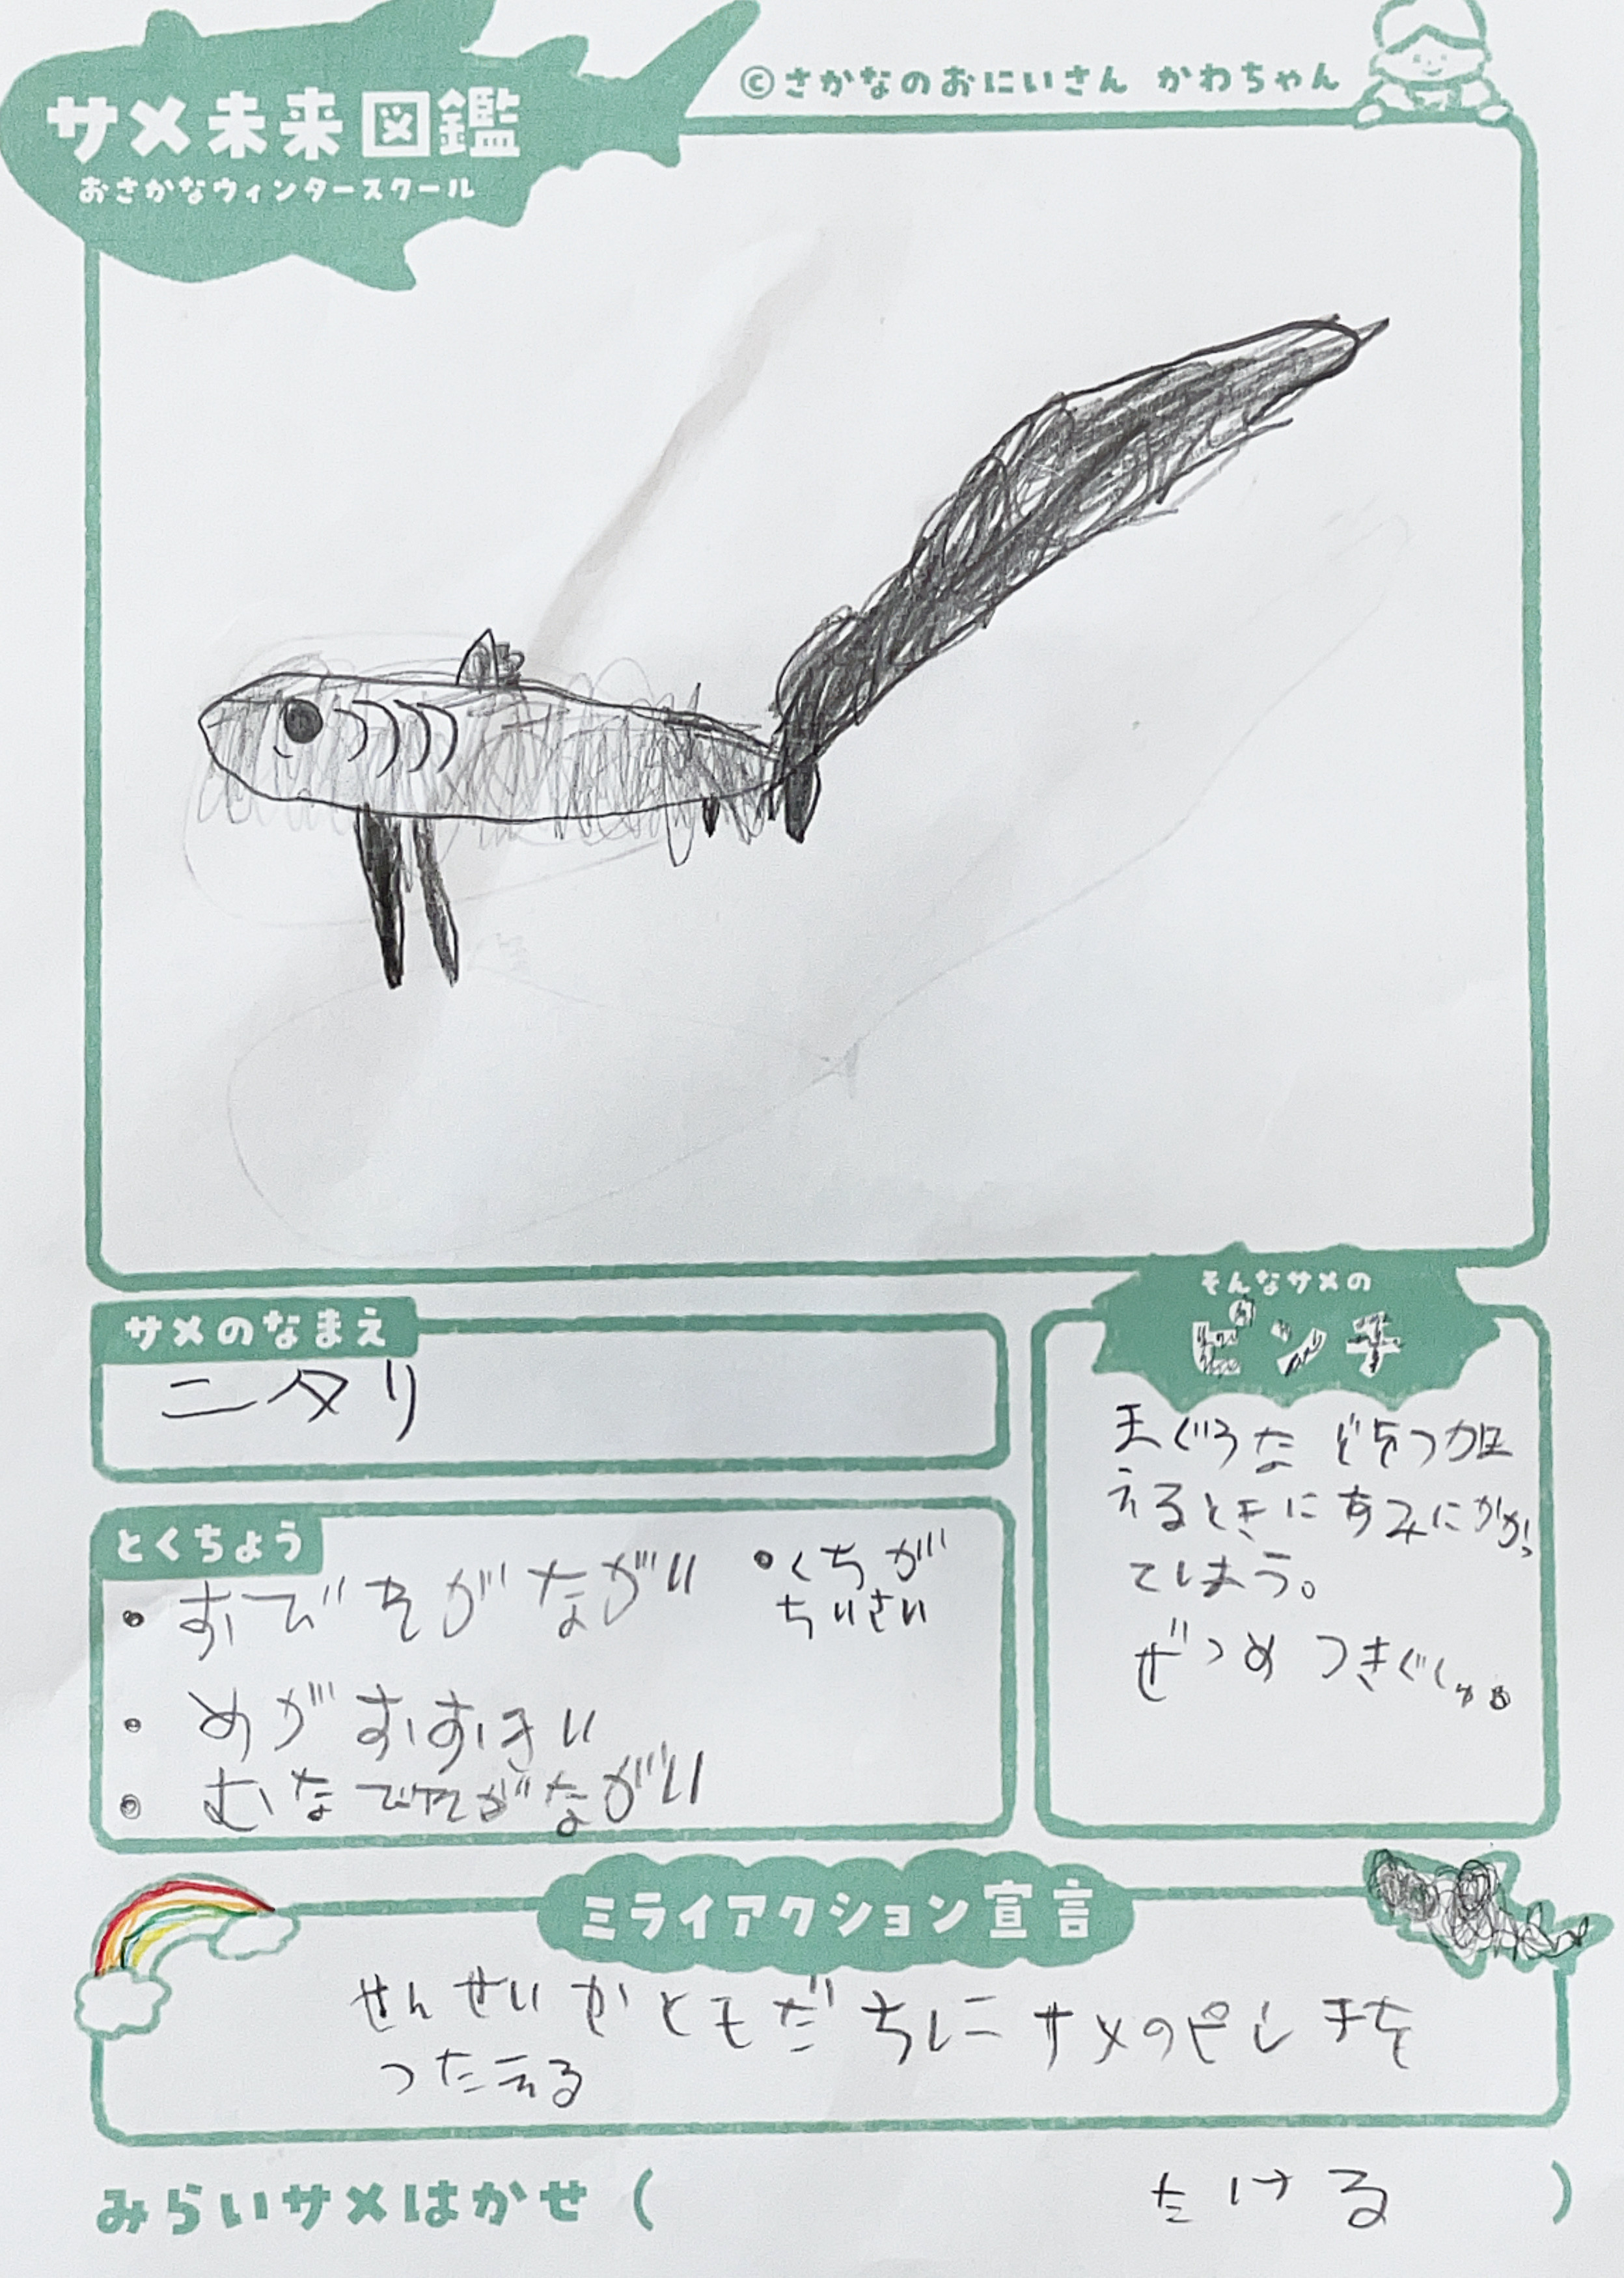 サメ未来図鑑
おさかなウィンタースクール
©さかなのおにいさん かわちゃん
サメのなまえ
ニタリ
とくちょう
・おびれがながい
・くちが
ちいさい
・めがおおきい
・むなびれがながい
そんなサメの
ピンチ
まぐろなどをつかま
えるときにあみにかかっ
てしまう。
ぜつめつきぐしゅ。
ミライアクション宣言
せんせいかともだちにサメのピンチを
つたえる
みらいサメはかせ( たける )